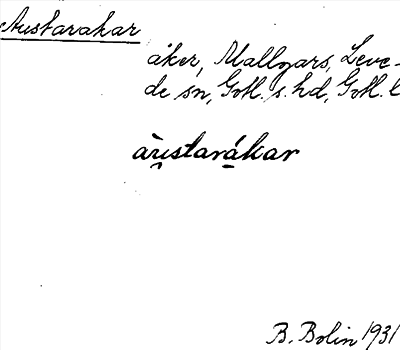 Austarakar
åker, Mallgars, Leve-
de sn, Gotl. s. hd, Gotl. l
àu̯starákar
B. Bolin 1931